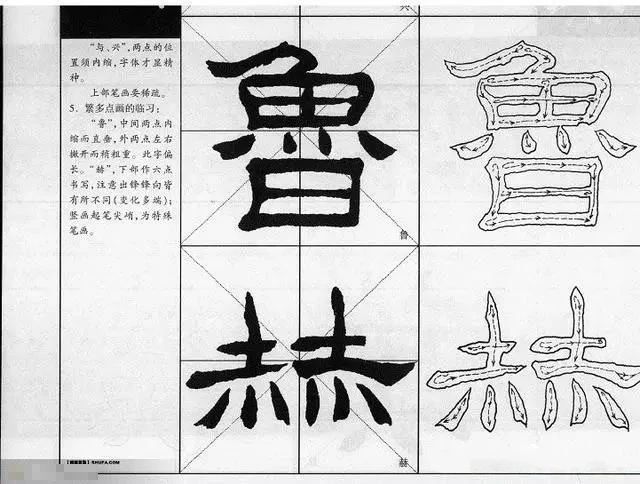 “与、兴”，两点的位
置须内缩，字体才显精
神。
上部笔画要稀疏。
5. 繁多点画的临习：
“鲁”，中间两点内
缩而直垂，外两点左右
撇开而稍粗重。此字偏
长。“赫”，下部作六点
书写，注意出锋锋向皆
有所不同（变化多端）；
竖画起笔尖峭，为特殊
笔画。
魯 魯
鲁
赫 赫
赫
SHUFA.COM